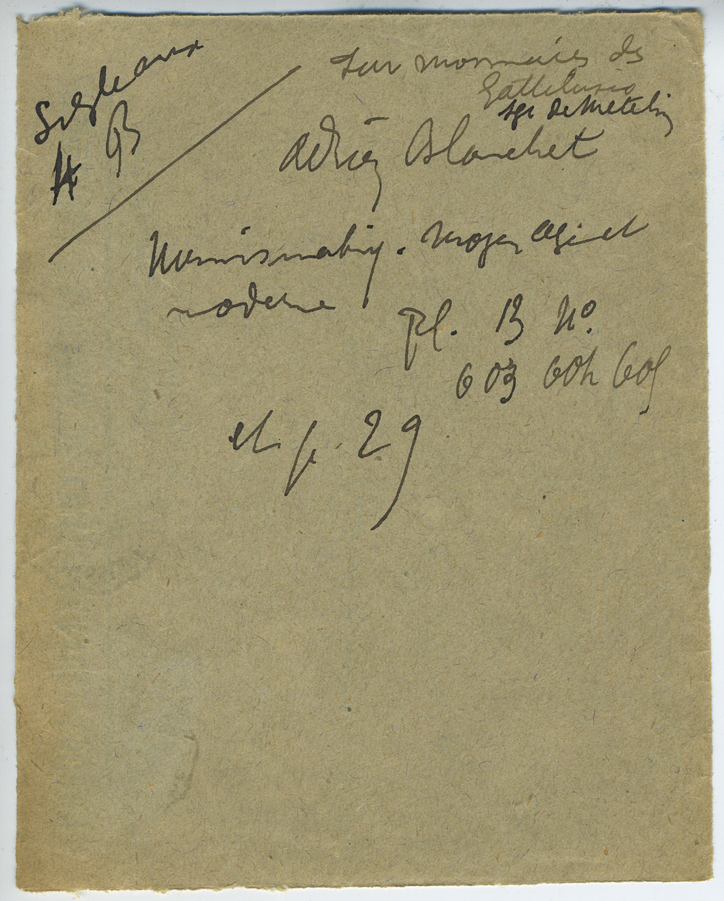 sur monnaies des
Gattelusio
sgr de Metelin
Adrien Blanchet
Numismatiq. moyen age et
moderne
Pl. 13 No.
603 604 605
et p. 29